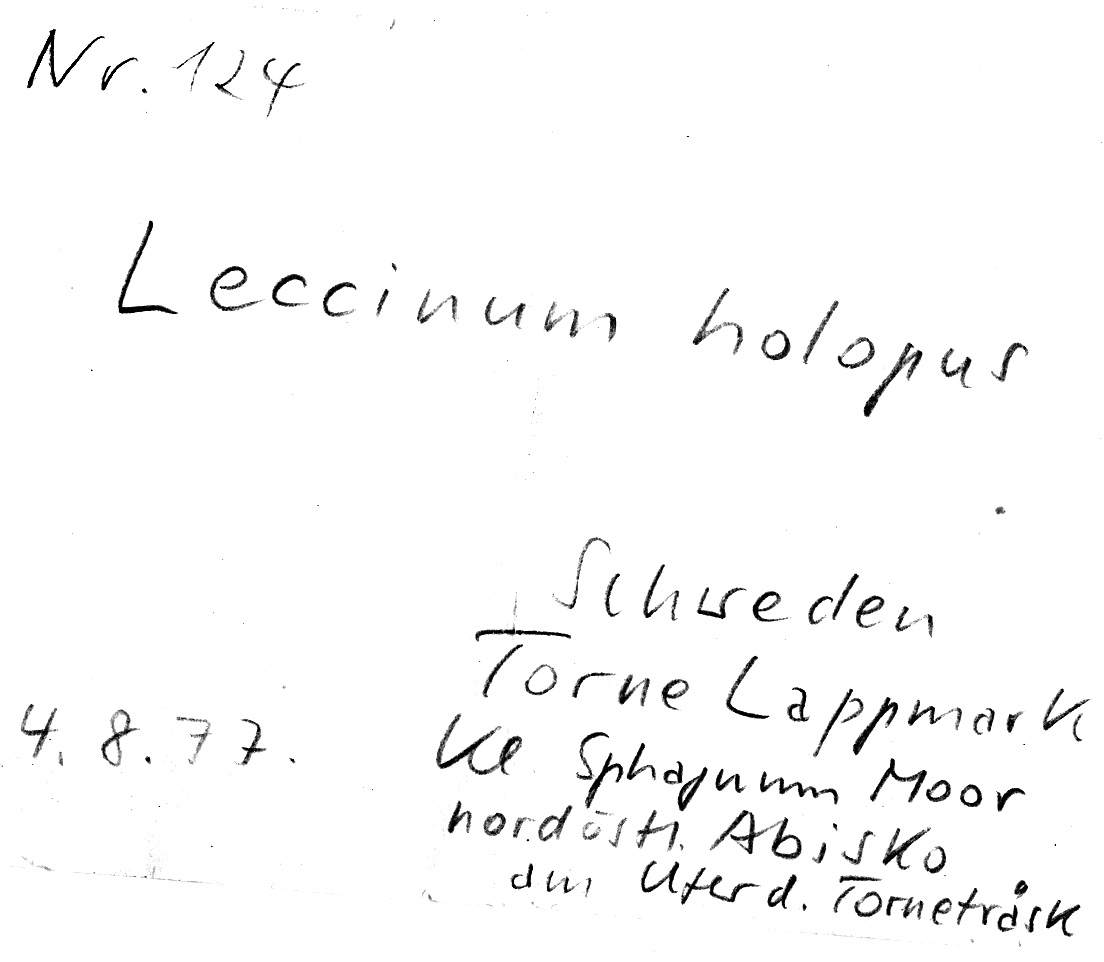 Nr. 124
Leccinum holopus
Schweden
Torne Lappmark
4.8.77. Kl Sphagnum Moor
nordöstl. Abisko
am Ufer d. Torneträsk